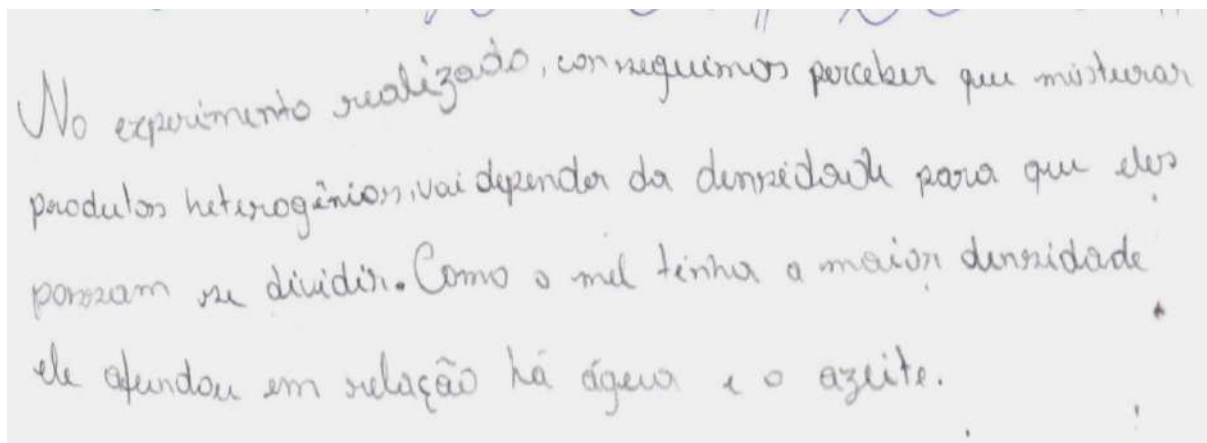 No experimento realizado, conseguimos perceber que misturar
produtos heterogênios, vai depender da densidade para que eles
possam se dividir. Como o mel tinha a maior densidade
ele afundou em relação há água e o azeite.